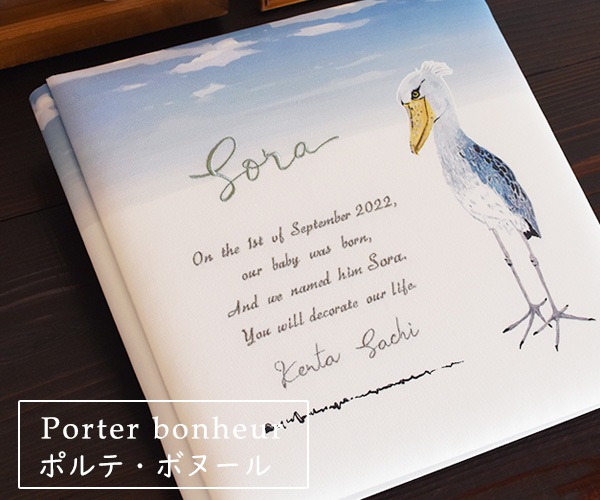 Sora
On the 1st of September 2022,
our baby was born,
And we named him Sora.
You will decorate our life.
Kenta Sachi
Porter bonheur
ポルテ・ボヌール